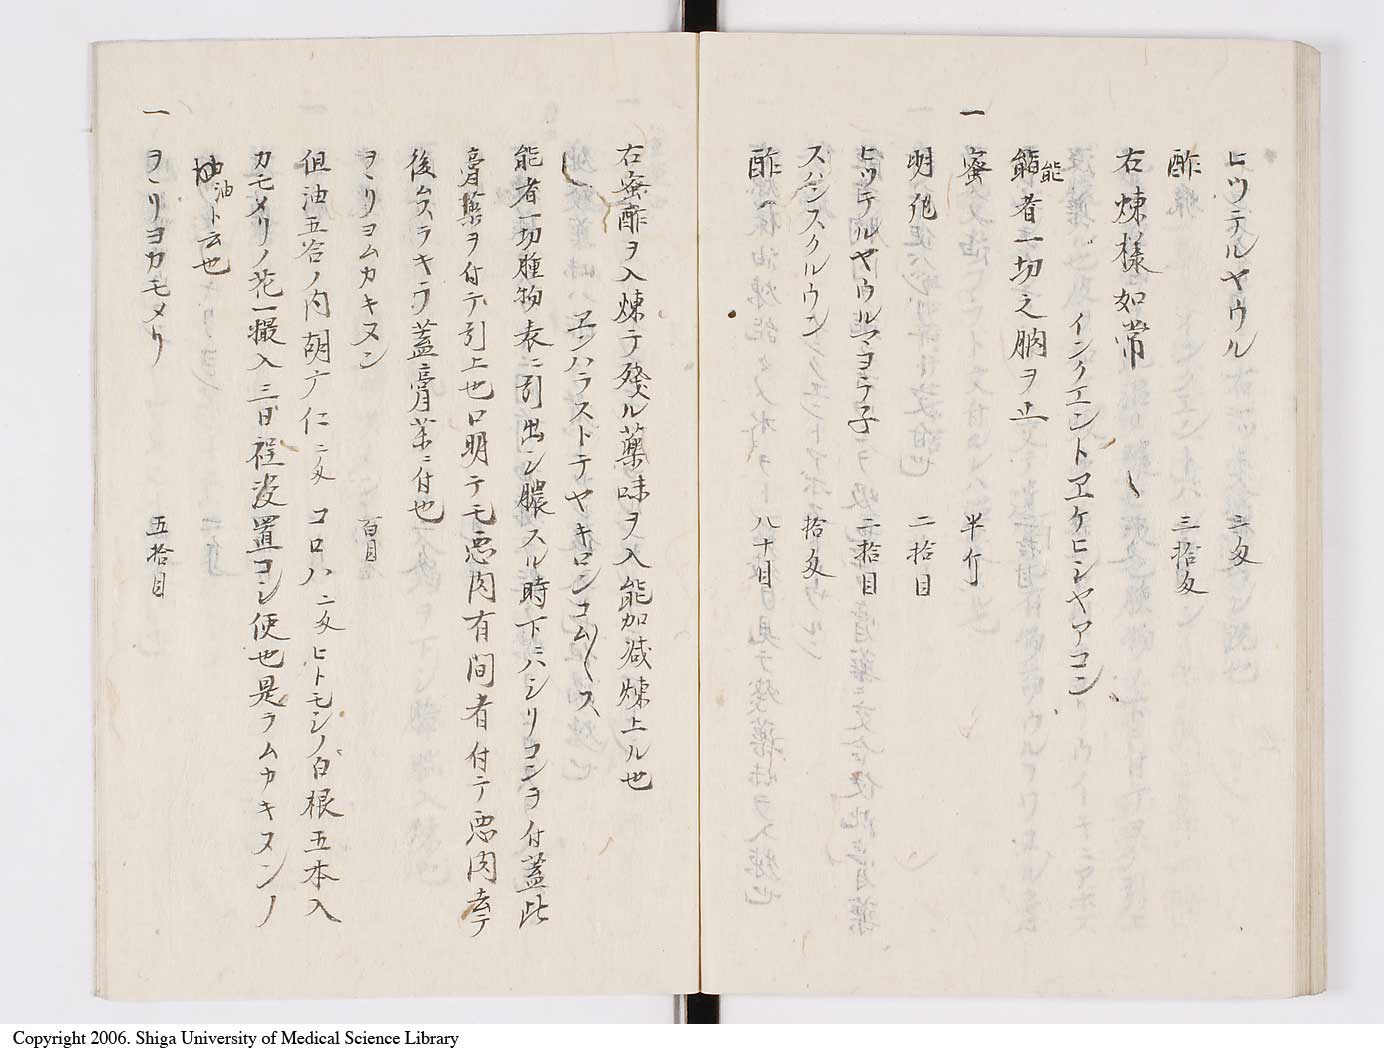 ヒツテルヤウル 三匁
酢 三拾匁
右煉様如常
インクエントヱケヒシヤアコン
能者一切之胸ヲ止
一 蜜 半斤
明礬 二拾目
ヒツテルヤウルマヨテ子 二拾目
スハンスクルウン 拾匁
酢 八十目
右蜜酢ヲ入煉テ殘ル薬味ヲ入能加減煉上ル也
ヱンハラストテヤキロンコム〱ス
能者一切腫物表ニ引出シ膿スル時下ニハシリコンヲ付蓋此
膏薬ヲ付テ引上也口明テモ悪肉有間者付テ悪肉去テ
後ムスラキヲ蓋膏薬ニ付也
ヲヽリヨムカキヌン 百目
但油五合ノ内胡广仁二匁コロハ二匁ヒトモシノ白根五本入
カモメリノ花一撮入三日程浸置コシ使也是ラムカキヌンノ
油ト云也
一 ヲヽリヨカモメリ 五拾目
Copyright 2006. Shiga University of Medical Science Library